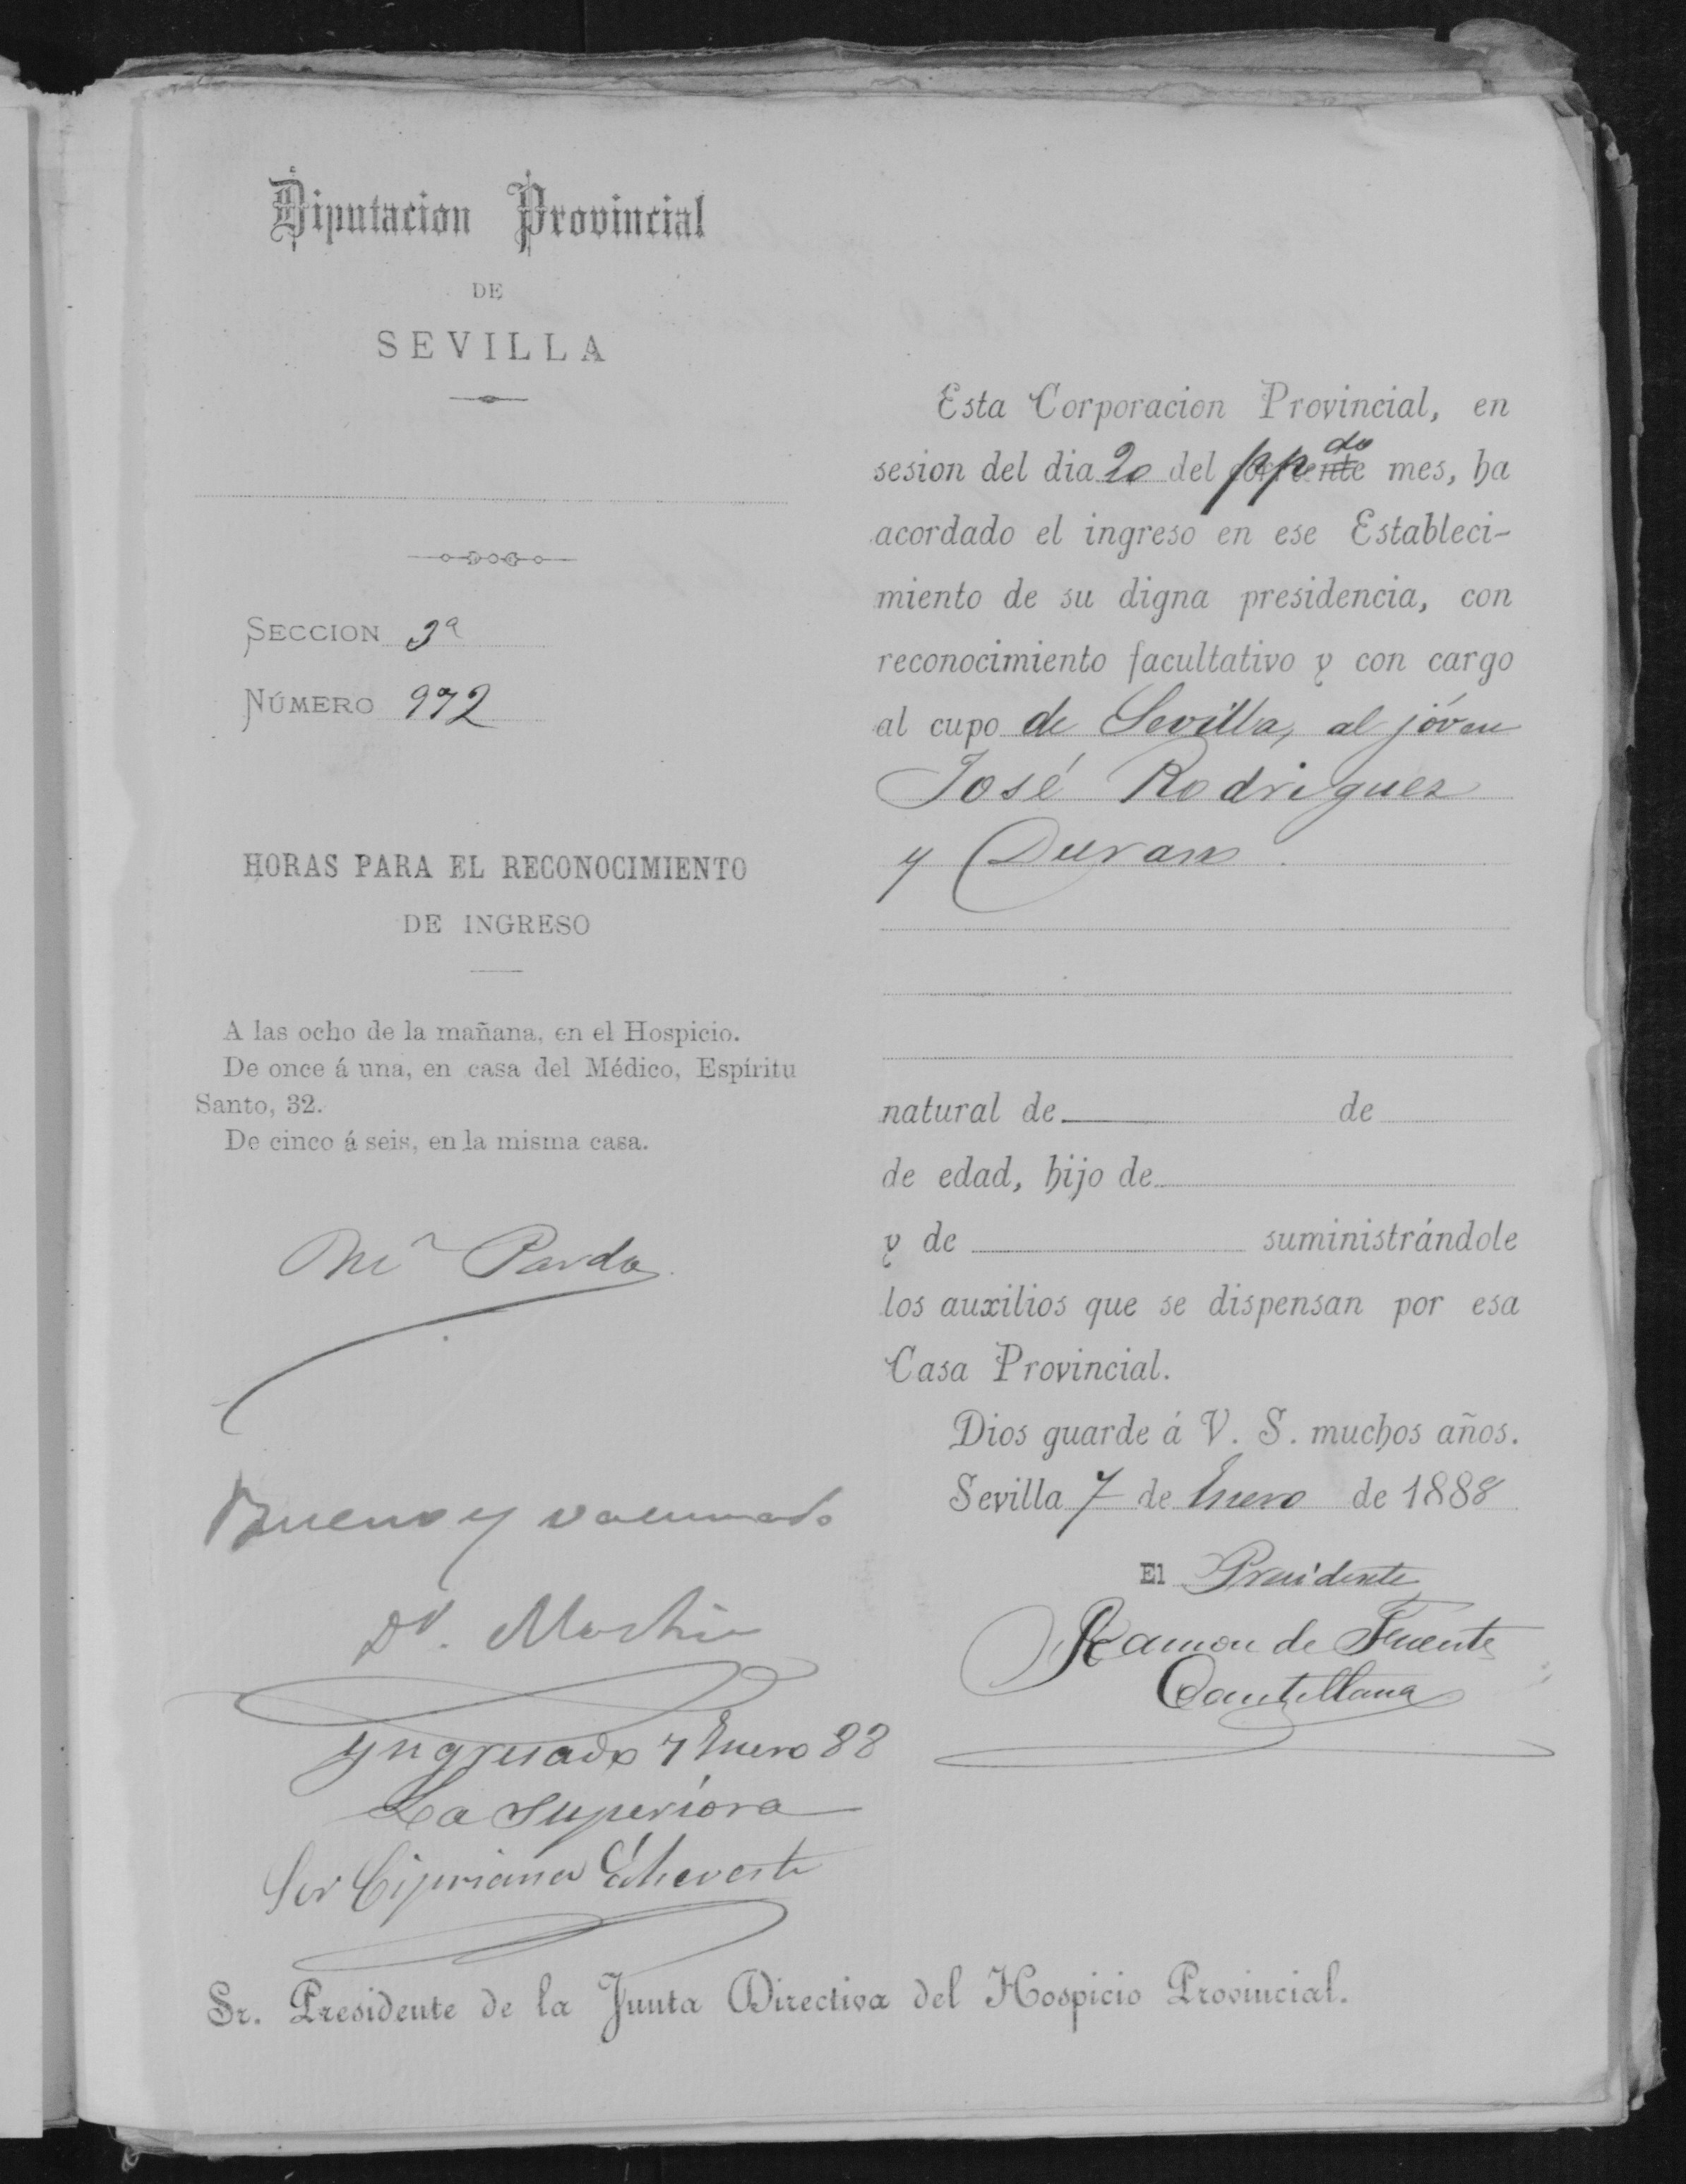 Diputacion Provincial
DE
SEVILLA
SECCION 3ª
NÚMERO 972
HORAS PARA EL RECONOCIMIENTO
DE INGRESO
A las ocho de la mañana, en el Hospicio.
De once á una, en casa del Médico, Espíritu
Santo, 32.
De cinco á seis, en la misma casa.
Mˡ Pardo
Bueno y vacunado
Dr.
Yngresado 7 Enero 88
La Superiora
Sor Cipriana Echeveste
Esta Corporacion Provincial, en
sesion del dia 20 del ppdo mes, ha
acordado el ingreso en ese Estableci-
miento de su digna presidencia, con
reconocimiento facultativo y con cargo
al cupo de Sevilla, al jóven
José Rodriguez
y Duran.
natural de de
de edad, hijo de
y de suministrándole
los auxilios que se dispensan por esa
Casa Provincial.
Dios guarde á V. S. muchos años.
Sevilla 7 de Enero de 1888
El Presidente
Ramon de Fuente
Cantillana
Sr. Presidente de la Junta Directiva del Hospicio Provincial.